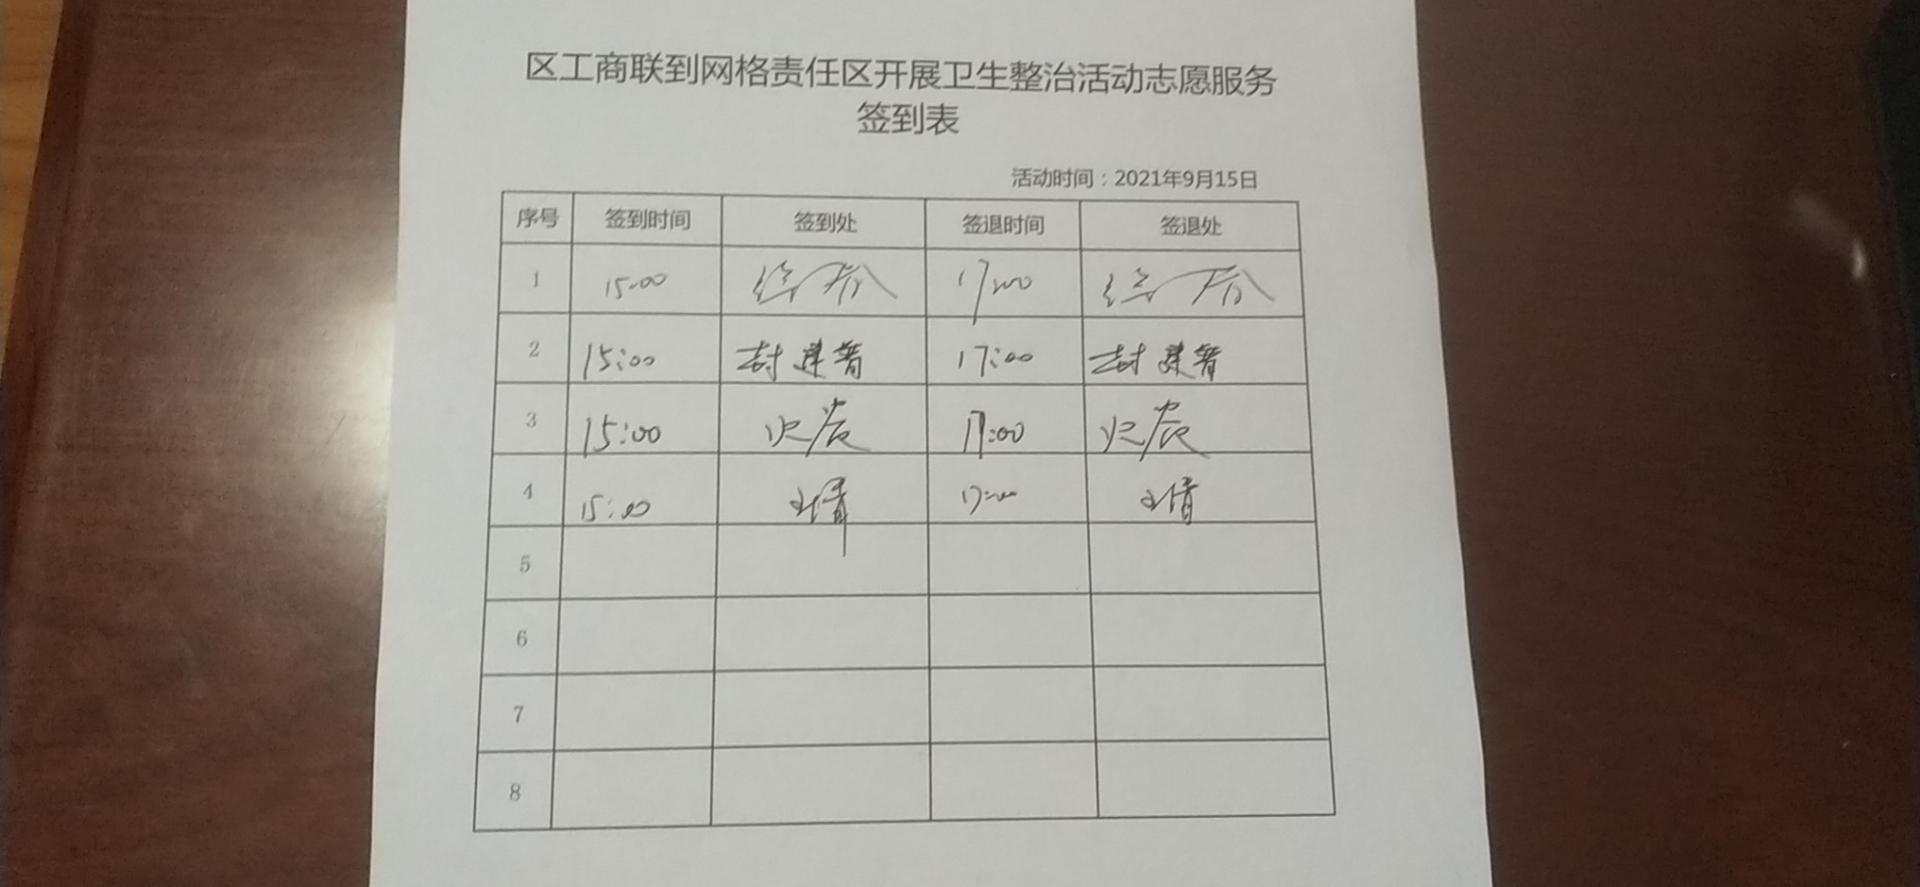 区工商联到网格责任区开展卫生整治活动志愿服务
签到表
活动时间：2021年9月15日
序号 签到时间 签到处 签退时间 签退处
1 15:00 17:00
2 15:00 封建普 17:00 封建普
3 15:00 17:00
4 15:00 王倩 17:00 王倩
5
6
7
8